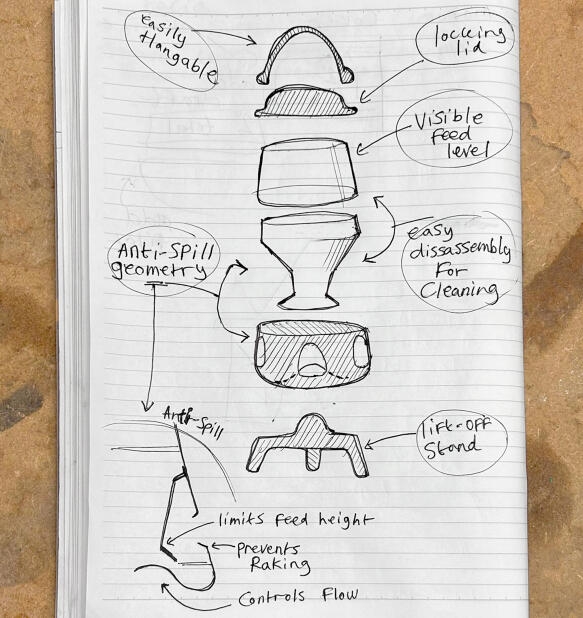 easily
Hangable
locking
lid
Visible
feed
level
easy
disassembly
For
Cleaning
Anti-Spill
geometry
lift-off
Stand
Anti-Spill
limits feed height
prevents
Raking
Controls Flow